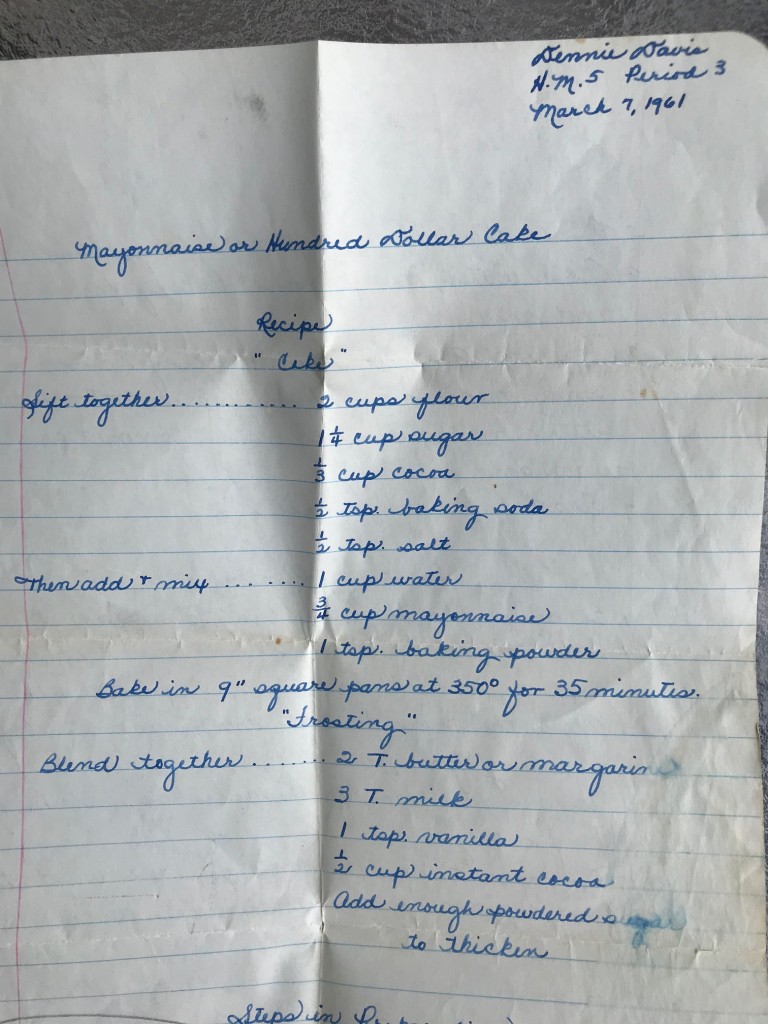 Davis
H.M. 5 Period 3
March 7, 1961
Mayonnaise or Hundred Dollar Cake
Recipe
"Cake"
Sift together........... 2 cups flour
1 1/4 cup sugar
1/3 cup cocoa
1/2 tsp. baking soda
1/2 tsp. salt
Then add & mix....... 1 cup water
3/4 cup mayonnaise
1 tsp. baking powder
Bake in 9" square pans at 350° for 35 minutes.
"Frosting"
Blend together........ 2 T. butter or margarine
3 T. milk
1 tsp. vanilla
1/2 cup instant cocoa
Add enough powdered sugar
to thicken
Steps in